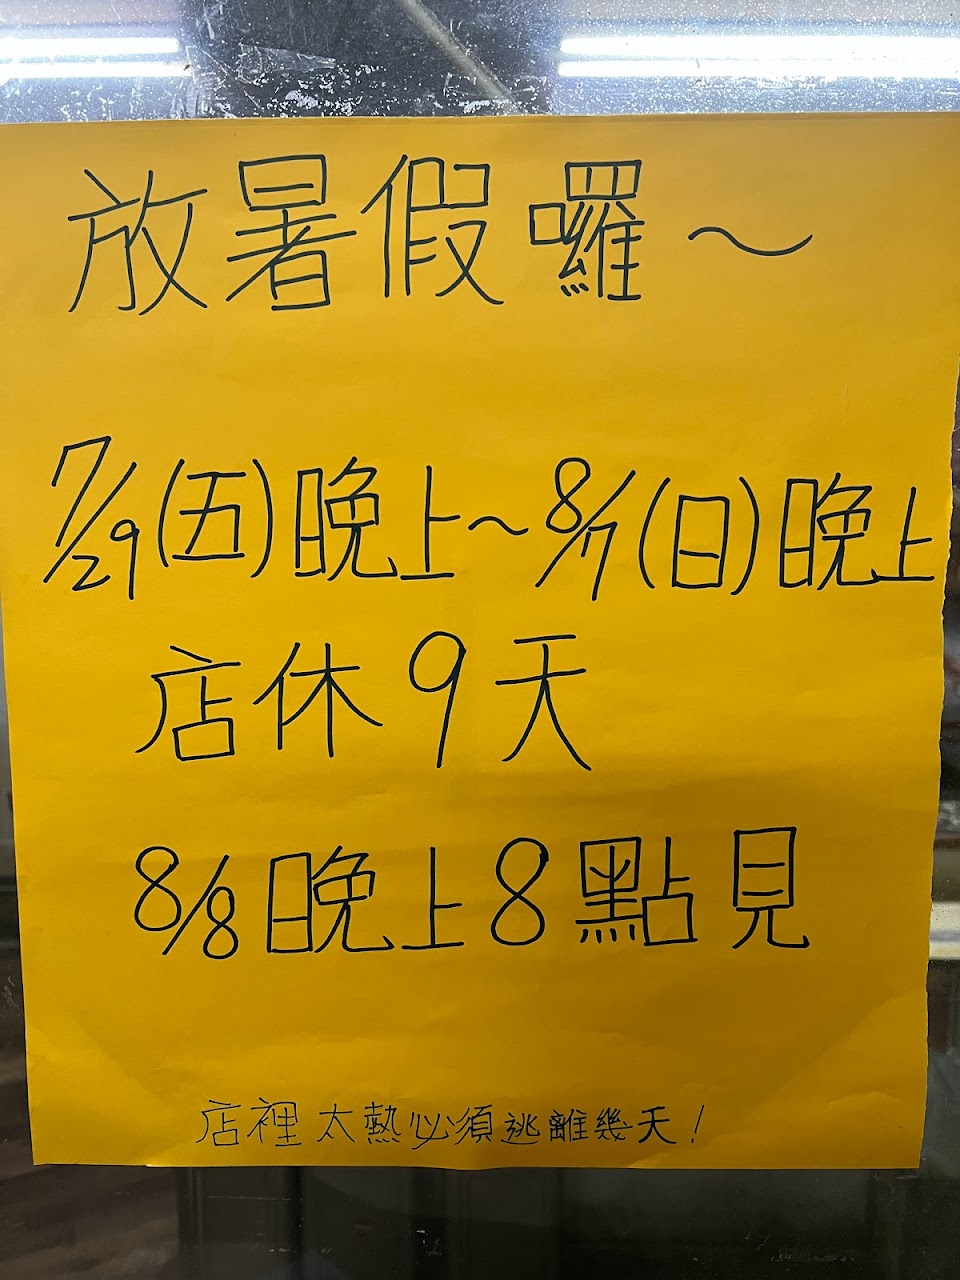 放暑假囉~
7/29(五)晚上~8/7(日)晚上
店休9天
8/8晚上8點見
店裡太熱必須逃離幾天!